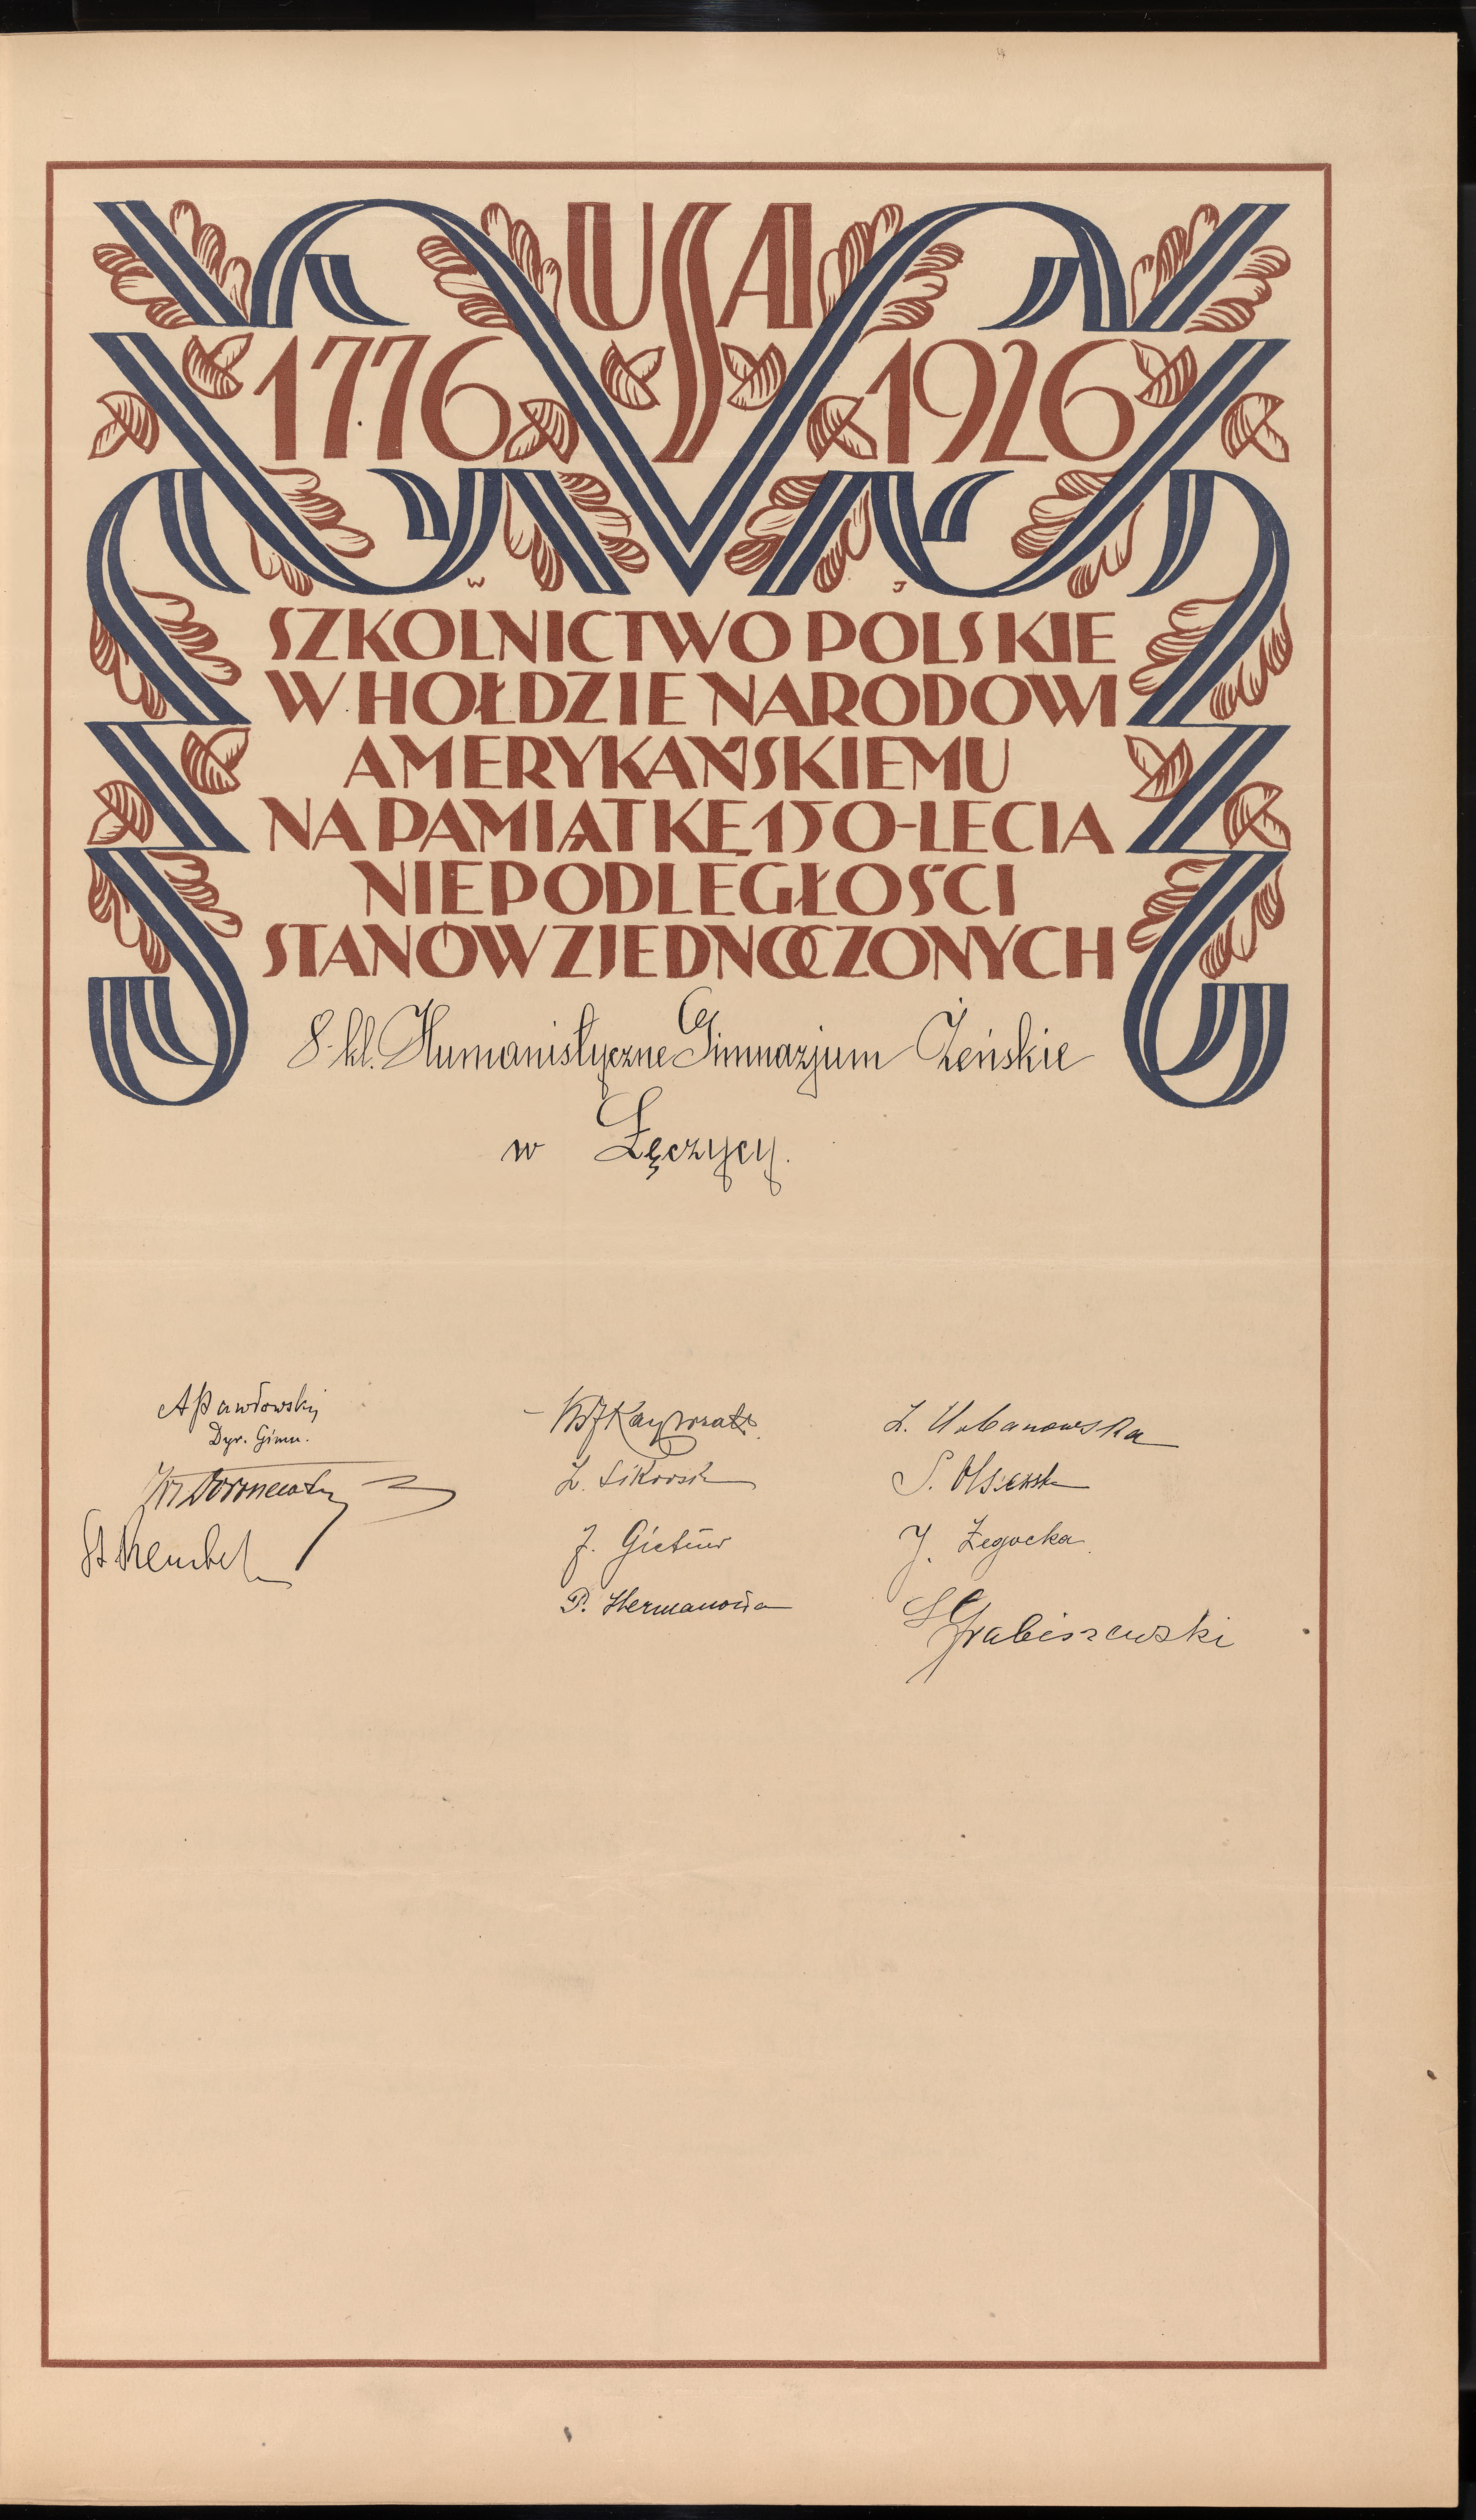 USA
1776 1926
W J
SZKOLNICTWO POLSKIE
W HOŁDZIE NARODOWI
AMERYKAŃSKIEMU
NA PAMIĄTKĘ 150-LECIA
NIEPODLEGŁOŚCI
STANÓW ZJEDNOCZONYCH
8-kl. Humanistyczne Gimnazjum Żeńskie
w Łęczycy.
A Pawłowski
Dyr. Gimn.
St
Z. Sikorska
J.
P. Hermanowa
Z. Urbanowska
S.
J. Żegocka
Grabiszewski